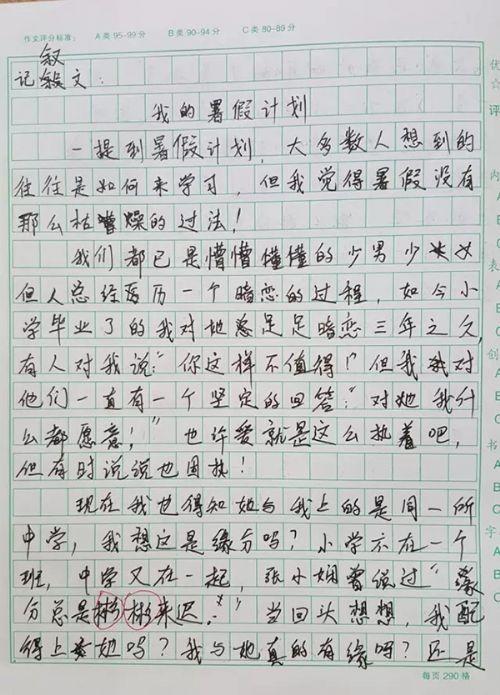 作文评分标准： A类 95-99分 B类 90-94分 C类 80-89分
叙
记文：
我的暑假计划
一提到暑假计划，大多数人想到的
往往是如何来学习，但我觉得暑假没有
那么枯燥的过法！
我们都已是懵懵懂懂的少男少女
但人总经历一个暗恋的过程，如今小
学毕业了的我对她足足暗恋三年之久，
有人对我说：“你这样不值得！”但我对
他们一直有一个坚定的回答：“对她我什
么都愿意！”也许爱就是这么执着吧，
但有时说说也固执！
现在我也得知她与我上的是同一所
中学，我想这是缘分吗？小学不在一个
班，中学又在一起，张小娴曾说过“缘
分总是彬彬来迟。”当回头想想，我配
得上她吗？我与她真的有缘吗？还是
每页 290 格
优
☆
评
内
A
B
C
表
A
B
C
创
A
B
C
书
A
B
C
字